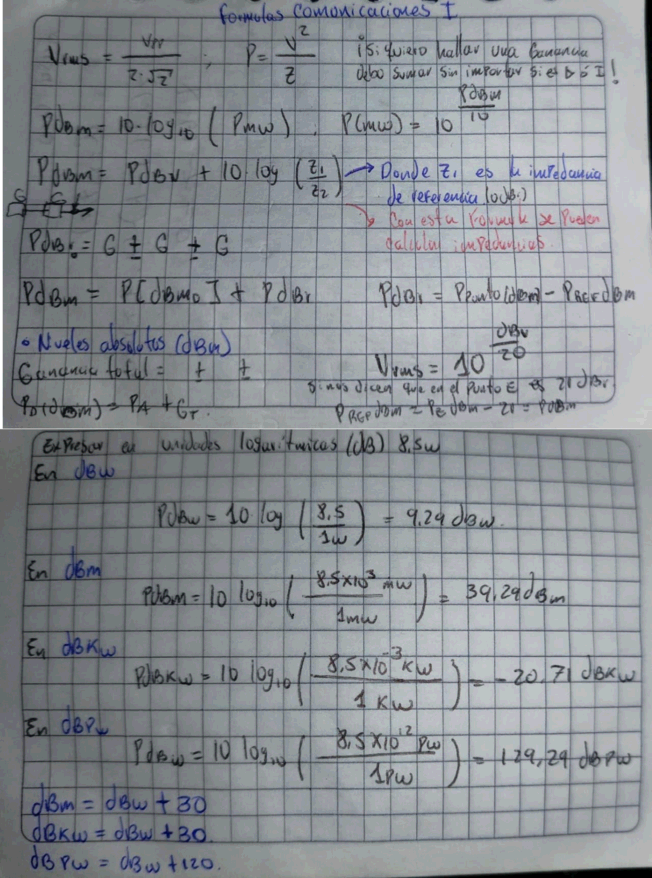 Formulas Comunicaciones I
Vrms = Vpp / 2·√2 ; P = V² / Z ¡Si quiero hallar una Ganancia
debo sumar sin importar si es D ó I!
PdBm = 10·log₁₀ (Pmw) ; P(mw) = 10^(PdBm/10)
PdBm = PdBu + 10 log (Z₁/Z₂) → Donde Z₁ es la impedancia
de referencia (0dBr)
→ Con esta Formula se Pueden
calcular impedancias.
G G
PdBr = G ± G ± G
PdBm = P[dBm₀] + PdBr PdBr = Ppunto(dBm) - PREF dBm
• Niveles absolutos (dBm)
Ganancia total = ± ± Vrms = 10^(dBv/20)
Si nos dicen que en el punto E es 21 dBr.
PD(dBm) = PA + GT. PREF dBm = PE dBm - 21 = PdBm
Expresar en unidades logarítmicas (dB) 8,5w
En dBw
PdBw = 10 log (8,5 / 1w) = 9,29 dBw.
En dBm
PdBm = 10 log₁₀ (8,5×10³ mw / 1mw) = 39,29dBm
En dBKw
PdBKw = 10 log₁₀ (8,5×10⁻³ Kw / 1 Kw) = -20,71 dBKw
En dBPw
PdBw = 10 log₁₀ (8,5×10¹² Pw / 1Pw) = 129,29 dBPw
dBm = dBw + 30
dBKw = dBw + 30.
dBPw = dBw + 120.